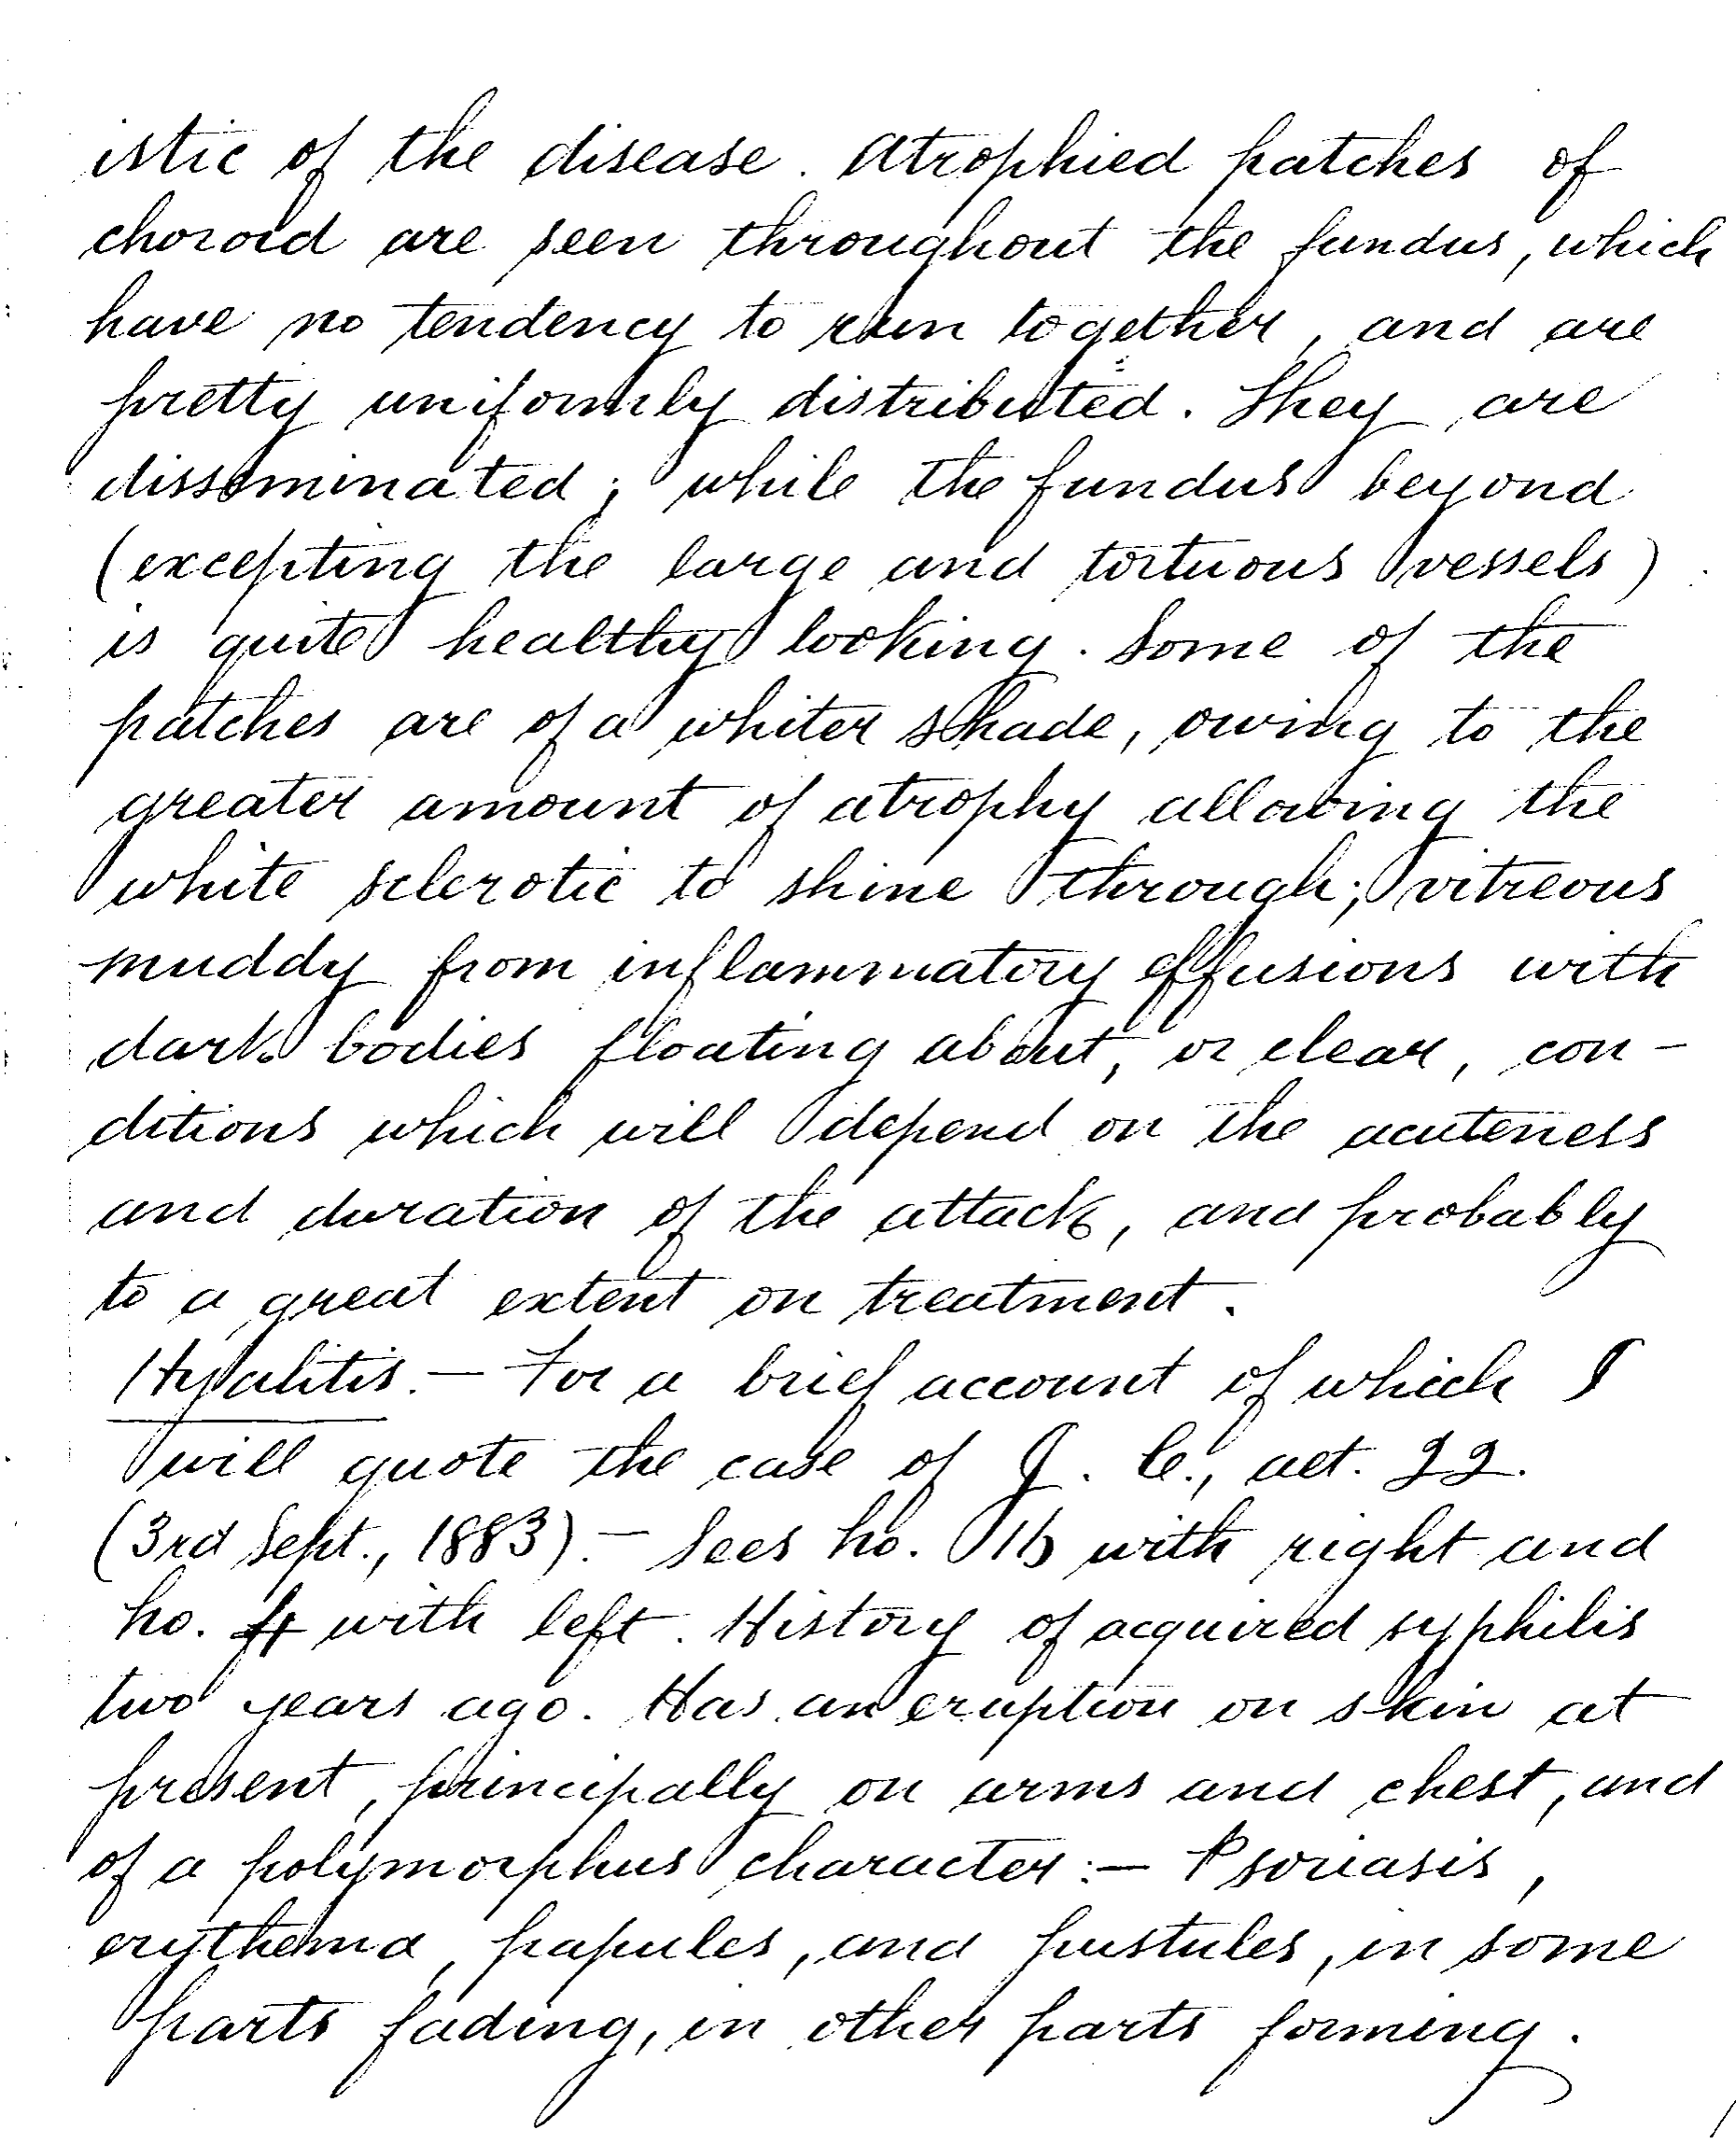 istic of the disease. Atrophied patches of
choroid are seen throughout the fundus, which
have no tendency to run together, and are
pretty uniformly distributed. They are
disseminated; while the fundus beyond
(excepting the large and tortuous vessels)
is quite healthy looking. Some of the
patches are of a whiter shade, owing to the
greater amount of atrophy allowing the
white sclerotic to shine through; vitreous
muddy from inflammatory effusions with
dark bodies floating about, or clear, con-
ditions which will depend on the acuteness
and duration of the attack, and probably
to a great extent on treatment.
Hyalitis. - For a brief account of which I
will quote the case of J. C., aet. 22.
(3rd Sept., 1883). - Sees No. 16 with right and
No. 4 with left. History of acquired syphilis
two years ago. Has an eruption on skin at
present, principally on arms and chest, and
of a polymorphus character: - Psoriasis,
erythema, papules, and pustules, in some
parts fading, in other parts forming.